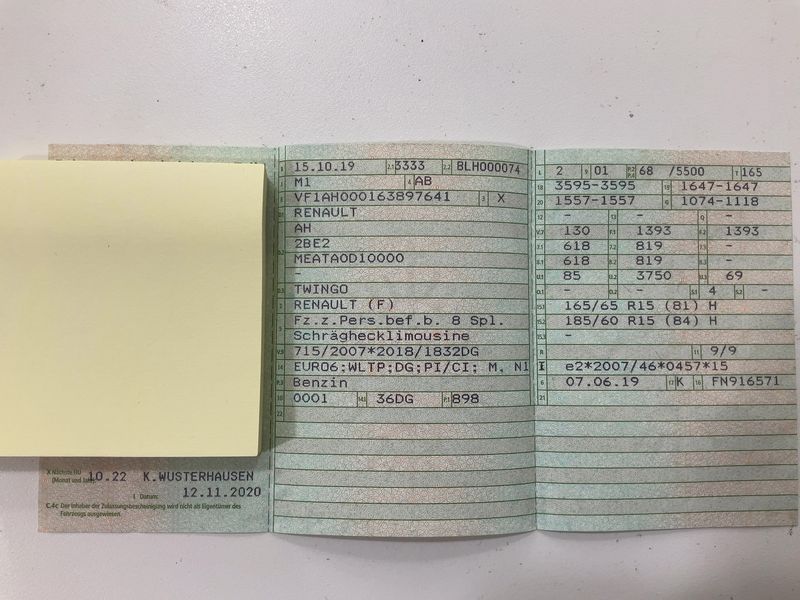 X Nächste HU
(Monat und Jahr) 10.22 K.WUSTERHAUSEN
I Datum: 12.11.2020
C.4c Der Inhaber der Zulassungsbescheinigung wird nicht als Eigentümer des
Fahrzeugs ausgewiesen.
B 15.10.19 2.1 3333 2.2 BLH000074
J M1 4 AB
E VF1AH000163897641 3 X
D.1 RENAULT
AH
D.2 2BE2
MEATA0D10000
-
D.3 TWINGO
2 RENAULT (F)
5 Fz.z.Pers.bef.b. 8 Spl.
Schräghecklimousine
V.9 715/2007*2018/1832DG
14 EURO6;WLTP;DG;PI/CI; M, N1 I
P.3 Benzin
10 0001 14.1 36DG P.1 898
22
L 2 9 01 P.2 P.4 68 /5500 T 165
18 3595-3595 19 1647-1647
20 1557-1557 G 1074-1118
12 - 13 - Q -
V.7 130 F.1 1393 F.2 1393
7.1 618 7.2 819 7.3 -
8.1 618 8.2 819 8.3 -
U.1 85 U.2 3750 U.3 69
O.1 - O.2 - S.1 4 S.2 -
15.1 165/65 R15 (81) H
15.2 185/60 R15 (84) H
15.3 -
R 11 9/9
K e2*2007/46*0457*15
6 07.06.19 17 K 16 FN916571
21